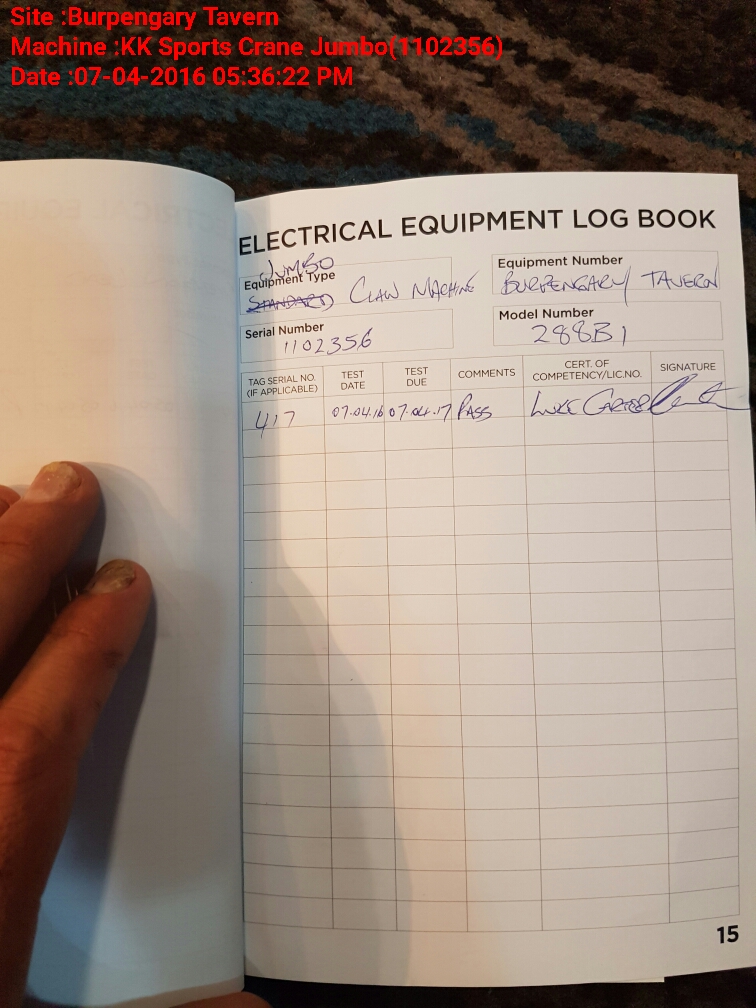 Site :Burpengary Tavern
Machine :KK Sports Crane Jumbo(1102356)
Date :07-04-2016 05:36:22 PM
ELECTRICAL EQUIPMENT LOG BOOK
JUMBO
Equipment Type
STANDARD CLAW MACHINE
Equipment Number
BURPENGARY TAVERN
Serial Number
1102356
Model Number
288B1
TAG SERIAL NO. (IF APPLICABLE) TEST DATE TEST DUE COMMENTS CERT. OF COMPETENCY/LIC.NO. SIGNATURE
417 07.04.16 07.04.17 PASS LUKE CARTER
15